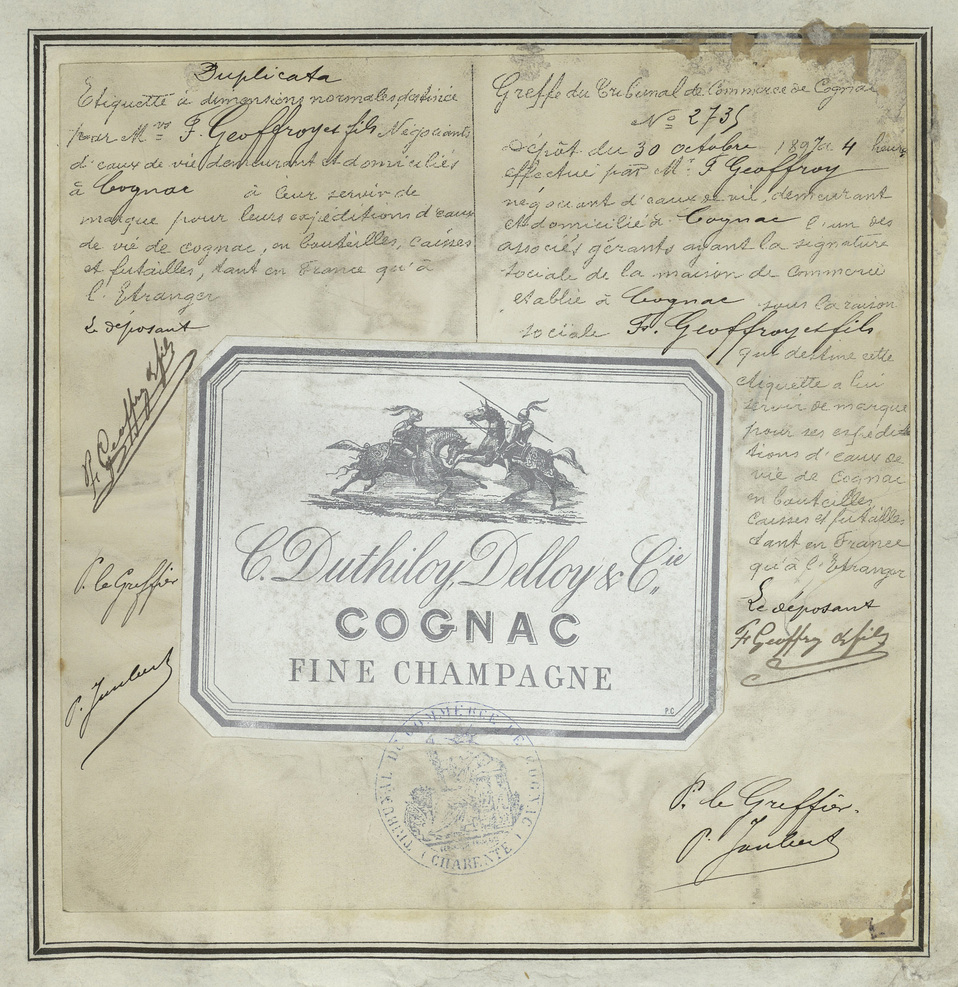 Duplicata
Etiquette à dimensions normales, destinée
par Mrs F. Geoffroy et fils Négociants
d'eaux de vie demeurant et domiciliés
à Cognac à leur servir de
marque pour leurs expéditions d'eaux
de vie de cognac, en bouteilles, caisses
et futailles, tant en France qu'à
l'Etranger
Le déposant
Fs Geoffroy & fils
P. le Greffier
P. Joubert
Greffe du Tribunal de Commerce de Cognac
No 2735
Dépôt du 30 octobre 1897 à 4 heures
effectué par Mr F Geoffroy
négociant d'eaux de vie, demeurant
et domicilié à Cognac l'un des
associés gérants ayant la signature
sociale de la maison de Commerce
établie à Cognac sous la raison
sociale Fs. Geoffroy et fils
qui destine cette
étiquette à lui
servir de marque
pour ses expédi-
tions d'eaux de
vie de Cognac
en bouteilles,
caisses et futailles
tant en France
qu'à l'Etranger
Le déposant
Fs Geoffroy & fils
P. le Greffier.
P. Joubert
C. Duthiloy, Delloy & Cie
COGNAC
FINE CHAMPAGNE
P.C
TRIBUNAL DE COMMERCE DE COGNAC
(CHARENTE)